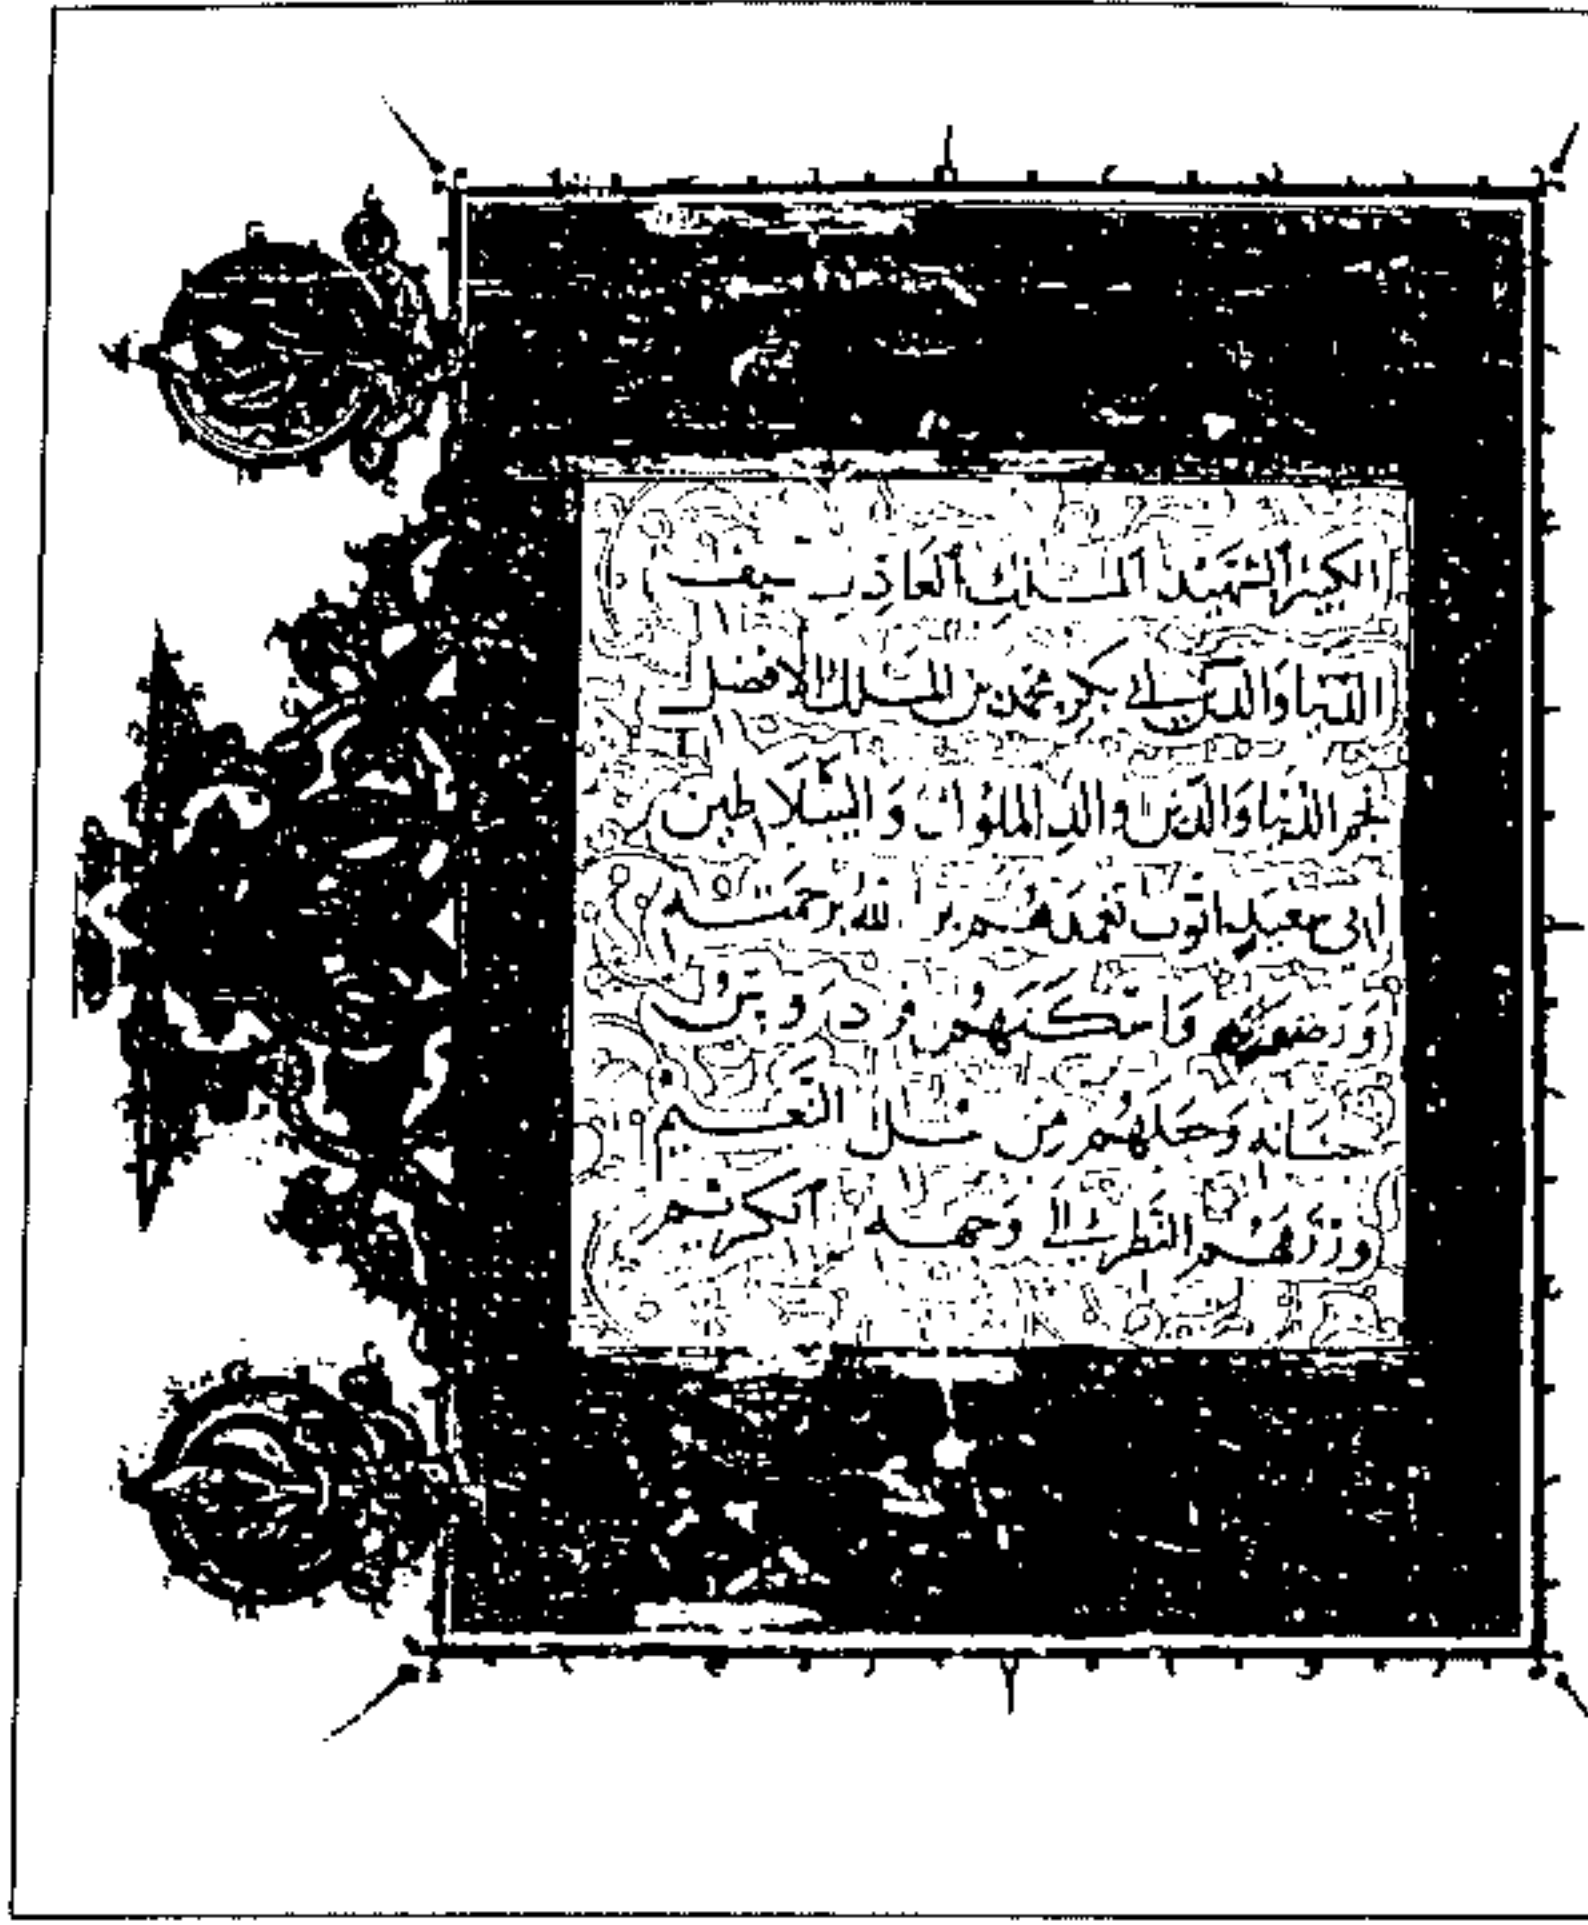 الكبير الشهيد الملك العادل سيف
الدنيا والدين ابي بكر محمد بن الملك الافضل
نجم الدنيا والدين والد الملوك والسلاطين
ابى سعيد ايوب تغمدهم الله برحمته
ورضوانه واسكنهم فردوس
جنانه وجعلهم من اهل النعيم
ورزقهم النظر الى وجهه الكريم